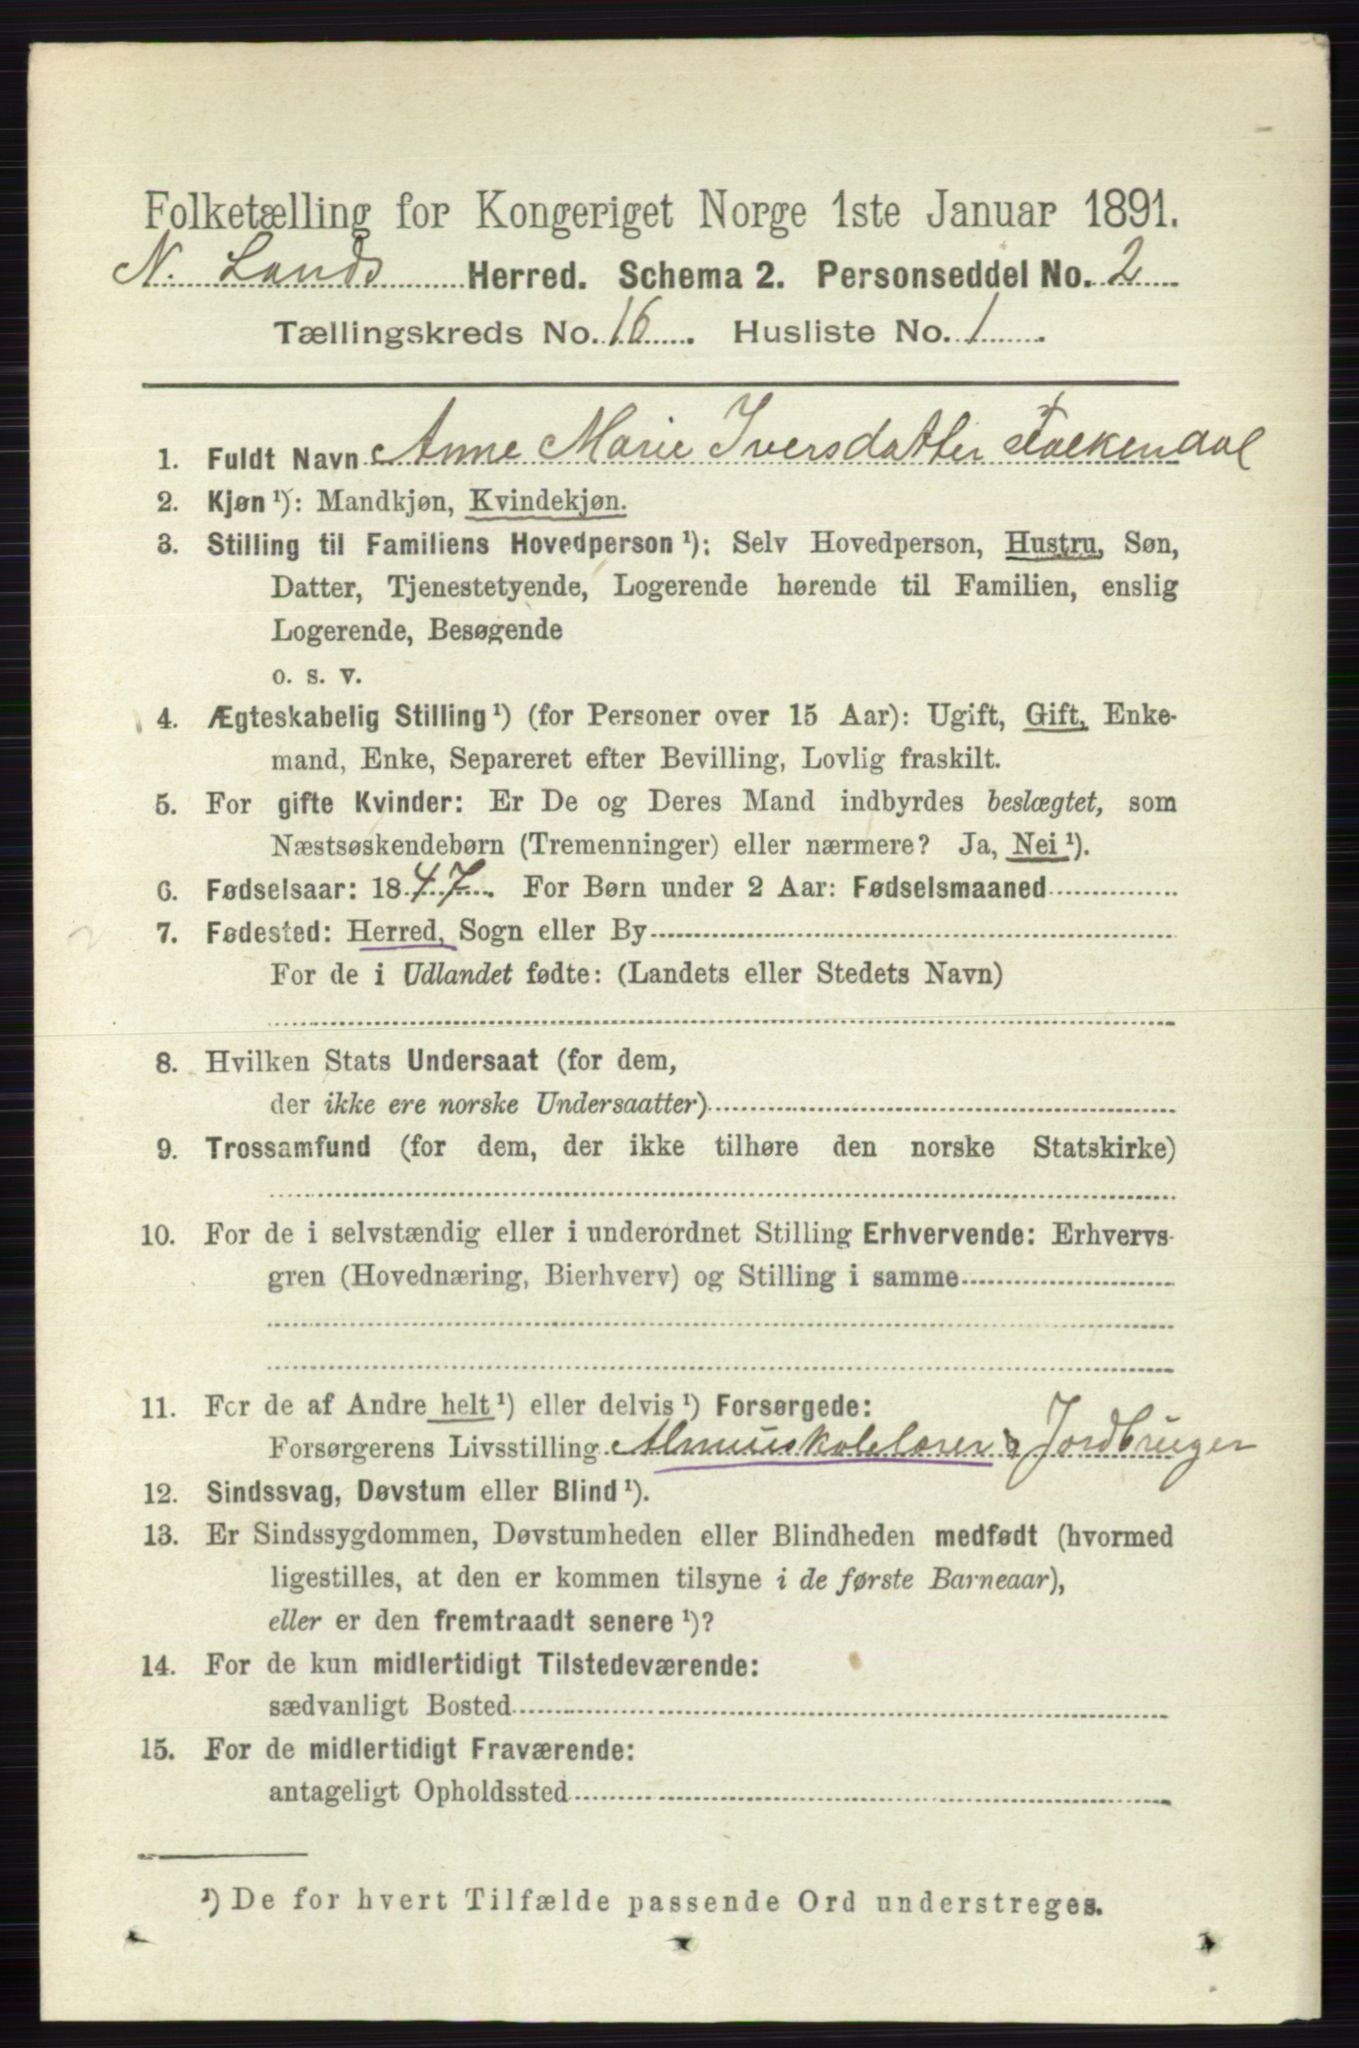 Folketælling for Kongeriget Norge 1ste Januar 1891.
N. Lands Herred. Schema 2. Personseddel No. 2
Tællingskreds No. 16. Husliste No. 1.
1. Fuldt Navn Anne Marie Iversdatter
2. Kjøn ¹): Mandkjøn, Kvindekjøn.
3. Stilling til Familiens Hovedperson ¹): Selv Hovedperson, Hustru, Søn,
Datter, Tjenestetyende, Logerende hørende til Familien, enslig
Logerende, Besøgende
o. s. v.
4. Ægteskabelig Stilling ¹) (for Personer over 15 Aar): Ugift, Gift, Enke-
mand, Enke, Separeret efter Bevilling, Lovlig fraskilt.
5. For gifte Kvinder: Er De og Deres Mand indbyrdes beslægtet, som
Næstsøskendebørn (Tremenninger) eller nærmere? Ja, Nei ¹).
6. Fødselsaar: 1847. For Børn under 2 Aar: Fødselsmaaned
7. Fødested: Herred, Sogn eller By
For de i Udlandet fødte: (Landets eller Stedets Navn)
8. Hvilken Stats Undersaat (for dem,
der ikke ere norske Undersaatter)
9. Trossamfund (for dem, der ikke tilhøre den norske Statskirke)
10. For de i selvstændig eller i underordnet Stilling Erhvervende: Erhvervs-
gren (Hovednæring, Bierhverv) og Stilling i samme
11. For de af Andre helt ¹) eller delvis ¹) Forsørgede:
Forsørgerens Livsstilling Almueskolelærer & Jordbruger
12. Sindssvag, Døvstum eller Blind ¹).
13. Er Sindssygdommen, Døvstumheden eller Blindheden medfødt (hvormed
ligestilles, at den er kommen tilsyne i de første Barneaar),
eller er den fremtraadt senere ¹)?
14. For de kun midlertidigt Tilstedeværende:
sædvanligt Bosted
15. For de midlertidigt Fraværende:
antageligt Opholdssted
¹) De for hvert Tilfælde passende Ord understreges.